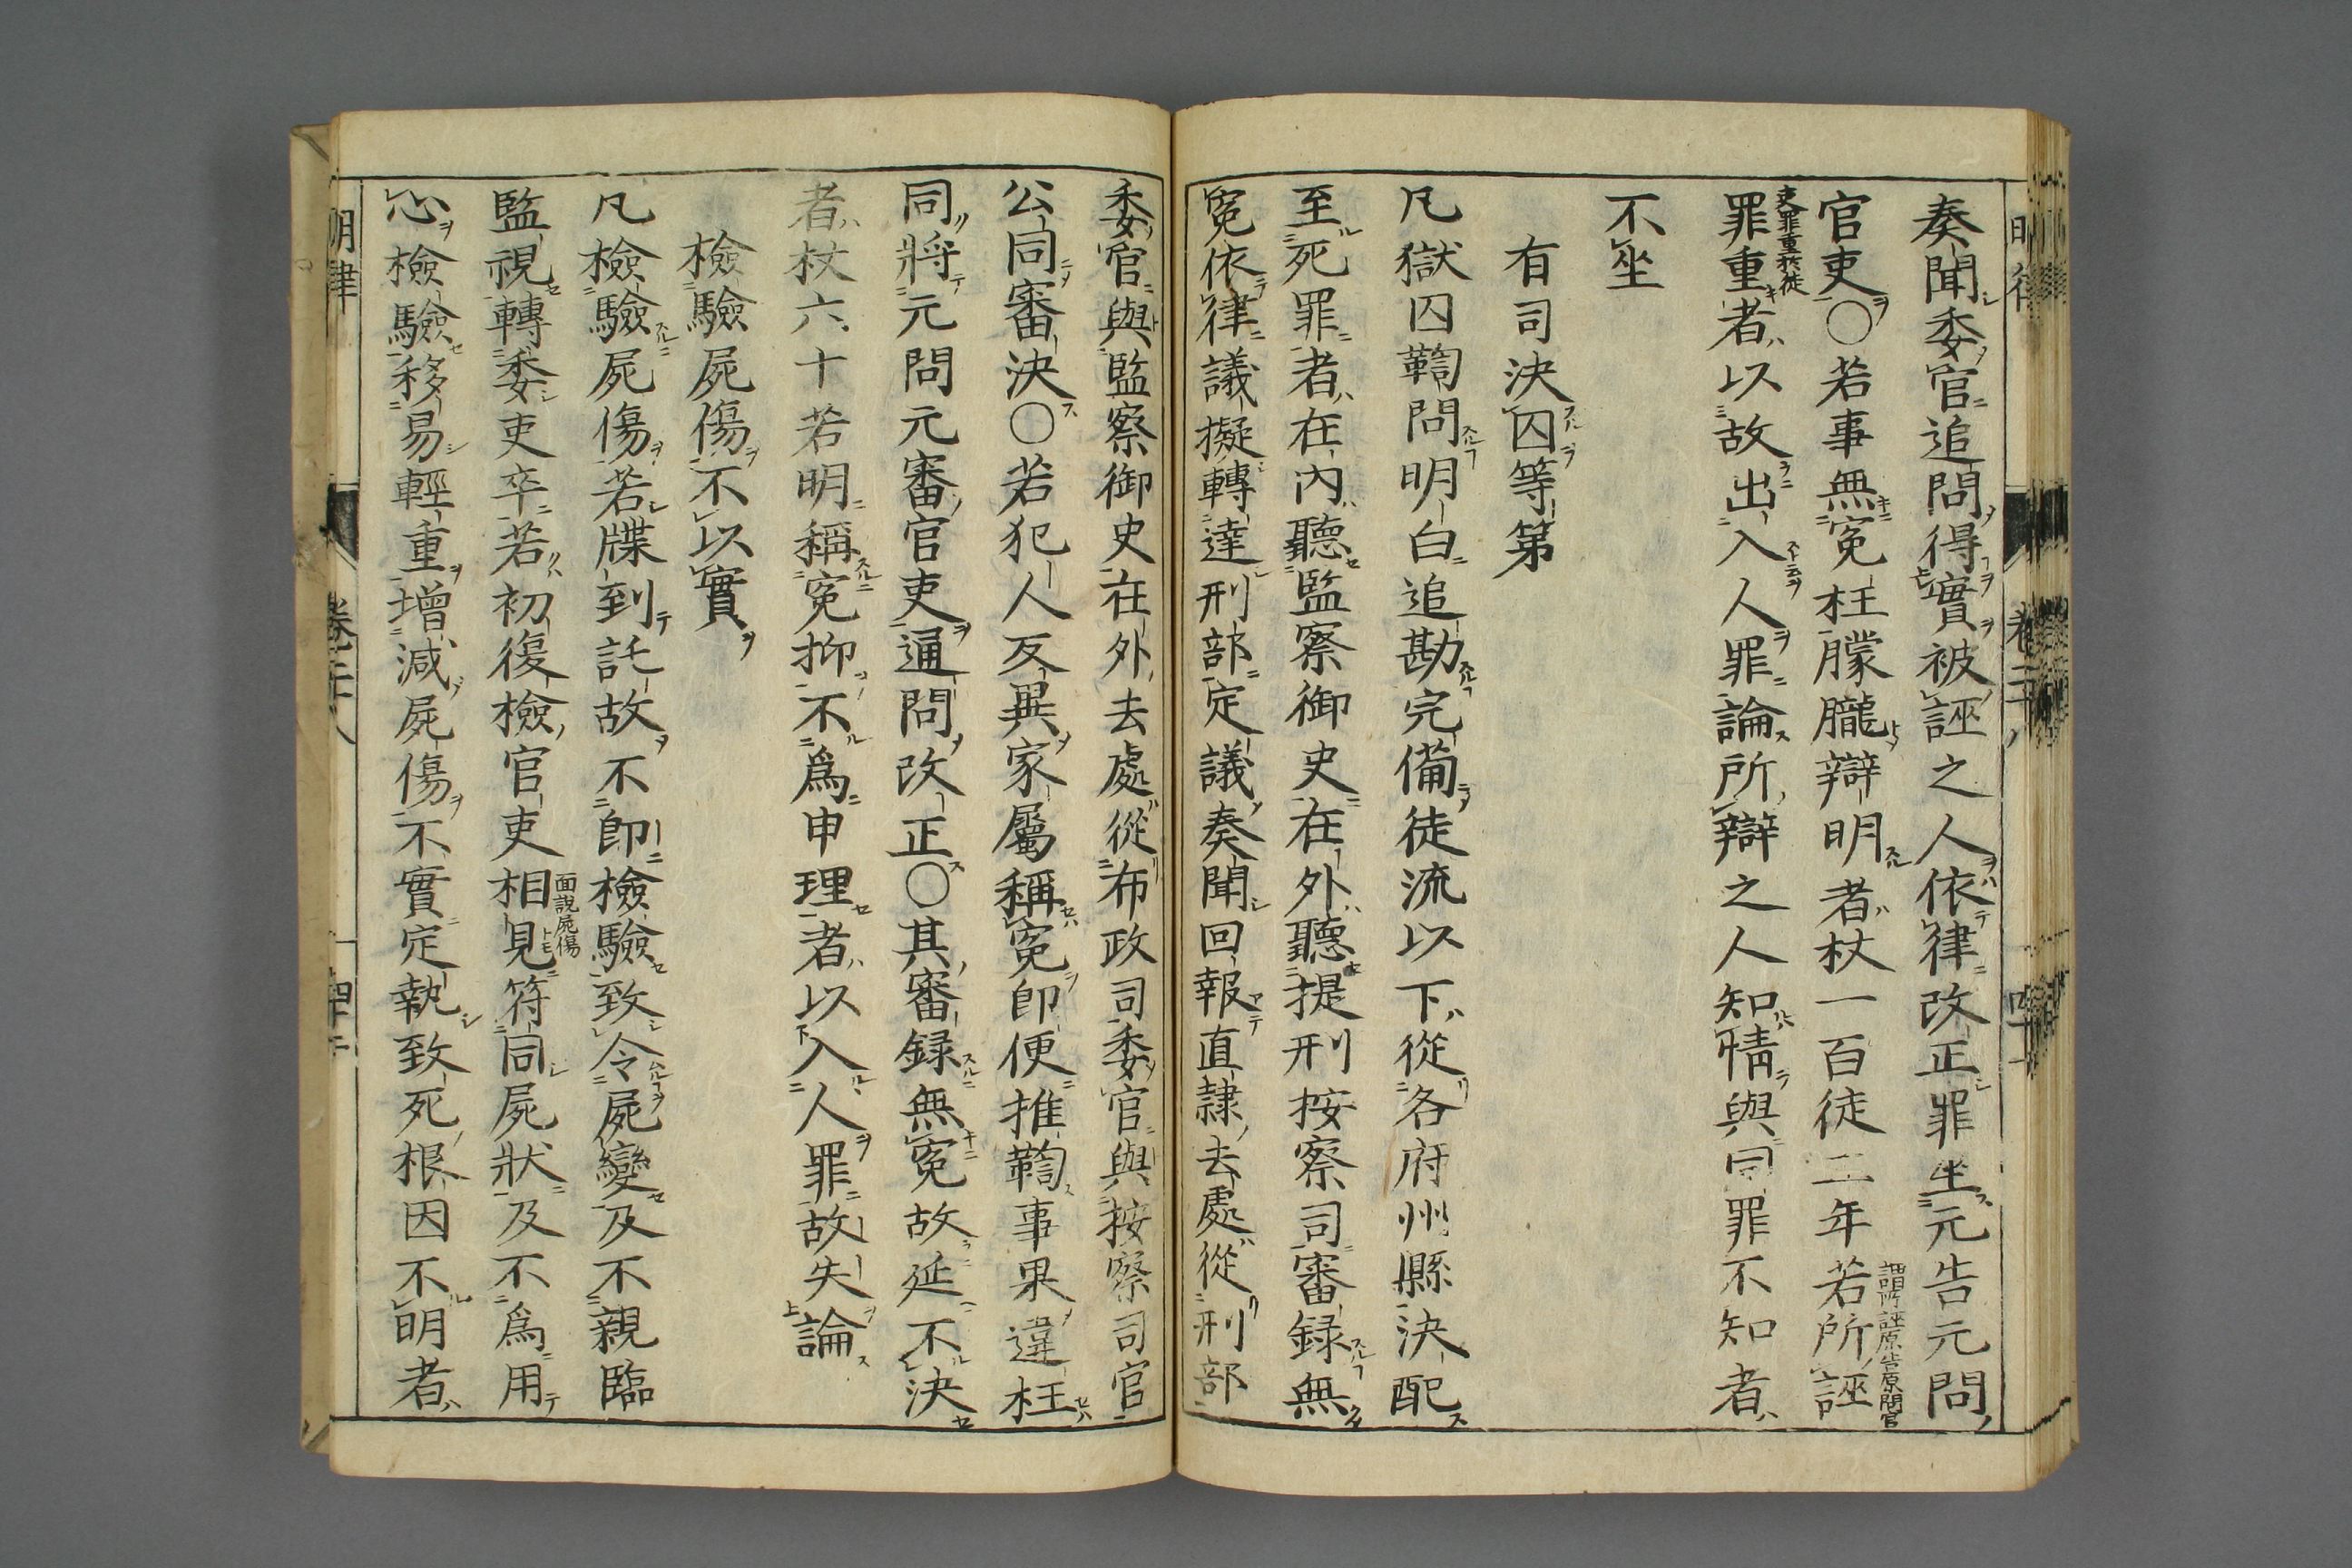 奏聞委官追問得實被誣之人依律改正罪坐元告元問
官吏○若事無冤枉朦朧辯明者杖一百徒二年若所誣
謂所誣原告原問官
吏罪重於徒
罪重者以故出入人罪論所辯之人知情與同罪不知者
不坐
有司決囚等第
凡獄囚鞫問明白追勘完備徒流以下從各府州縣決配
至死罪者在內聽監察御史在外聽提刑按察司審録無
冤依律議擬轉達刑部定議奏聞回報直隷去處從刑部
委官與監察御史在外去處從布政司委官與按察司官
公同審決○若犯人反異家屬稱冤即便推鞫事果違枉
同將元問元審官吏通問改正○其審録無冤故延不決
者杖六十若明稱冤抑不爲申理者以入人罪故失論
檢驗屍傷不以實
凡檢驗屍傷若牒到託故不即檢驗致令屍變及不親臨
監視轉委吏卒若初復檢官吏相見符同屍狀及不爲用
面說屍傷
心檢驗移易輕重增減屍傷不實定執致死根因不明者
明律